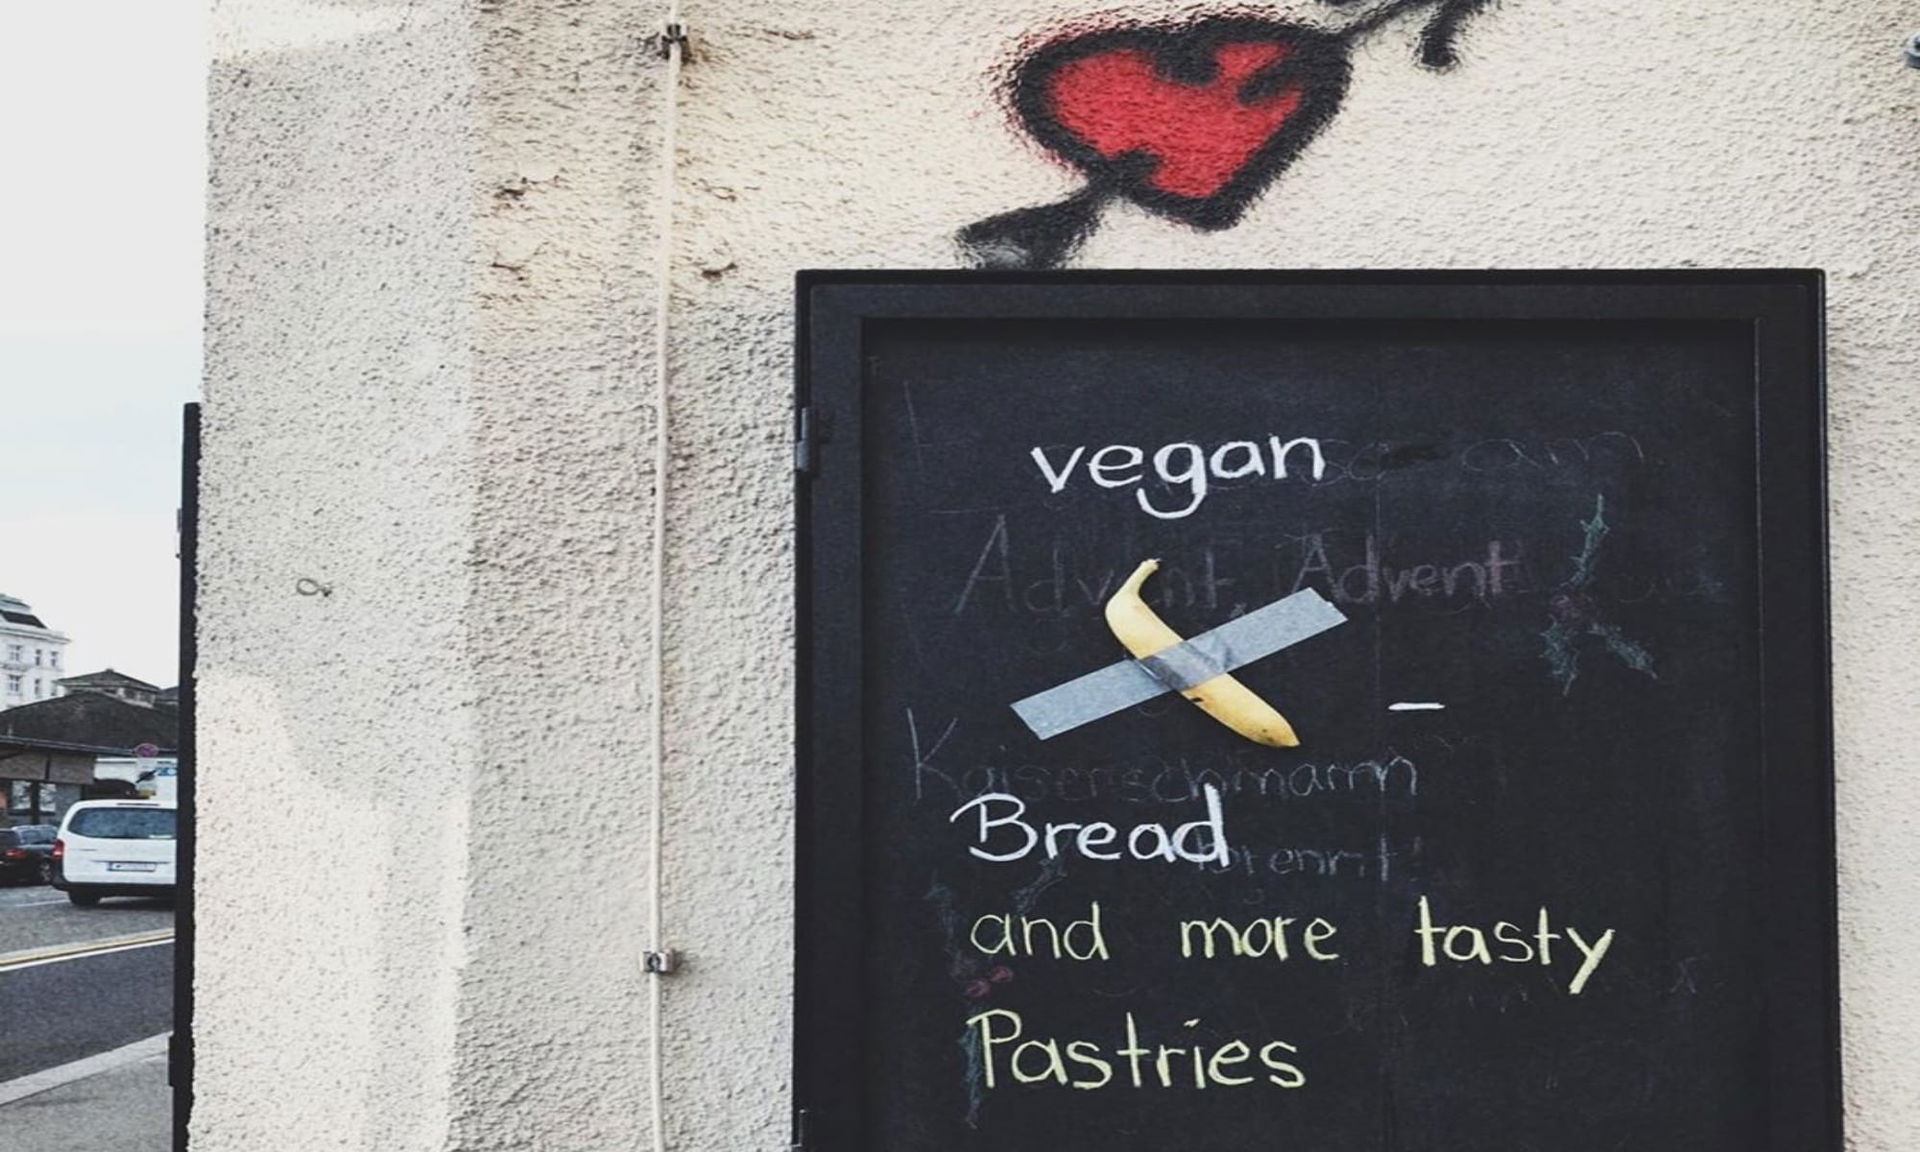 vegan
Advent, Advent
–
Kaiserschmarrn
Bread
and more tasty
Pastries